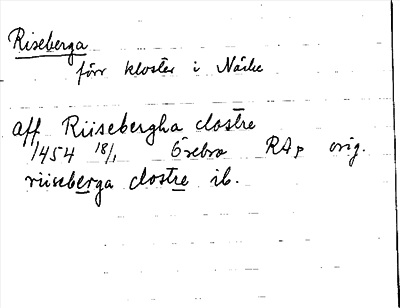 Riseberga
förr kloster i Närke
aff Riisebergha clostre
1454 18/1 Örebro RAp orig.
riiseberga clostre ib.